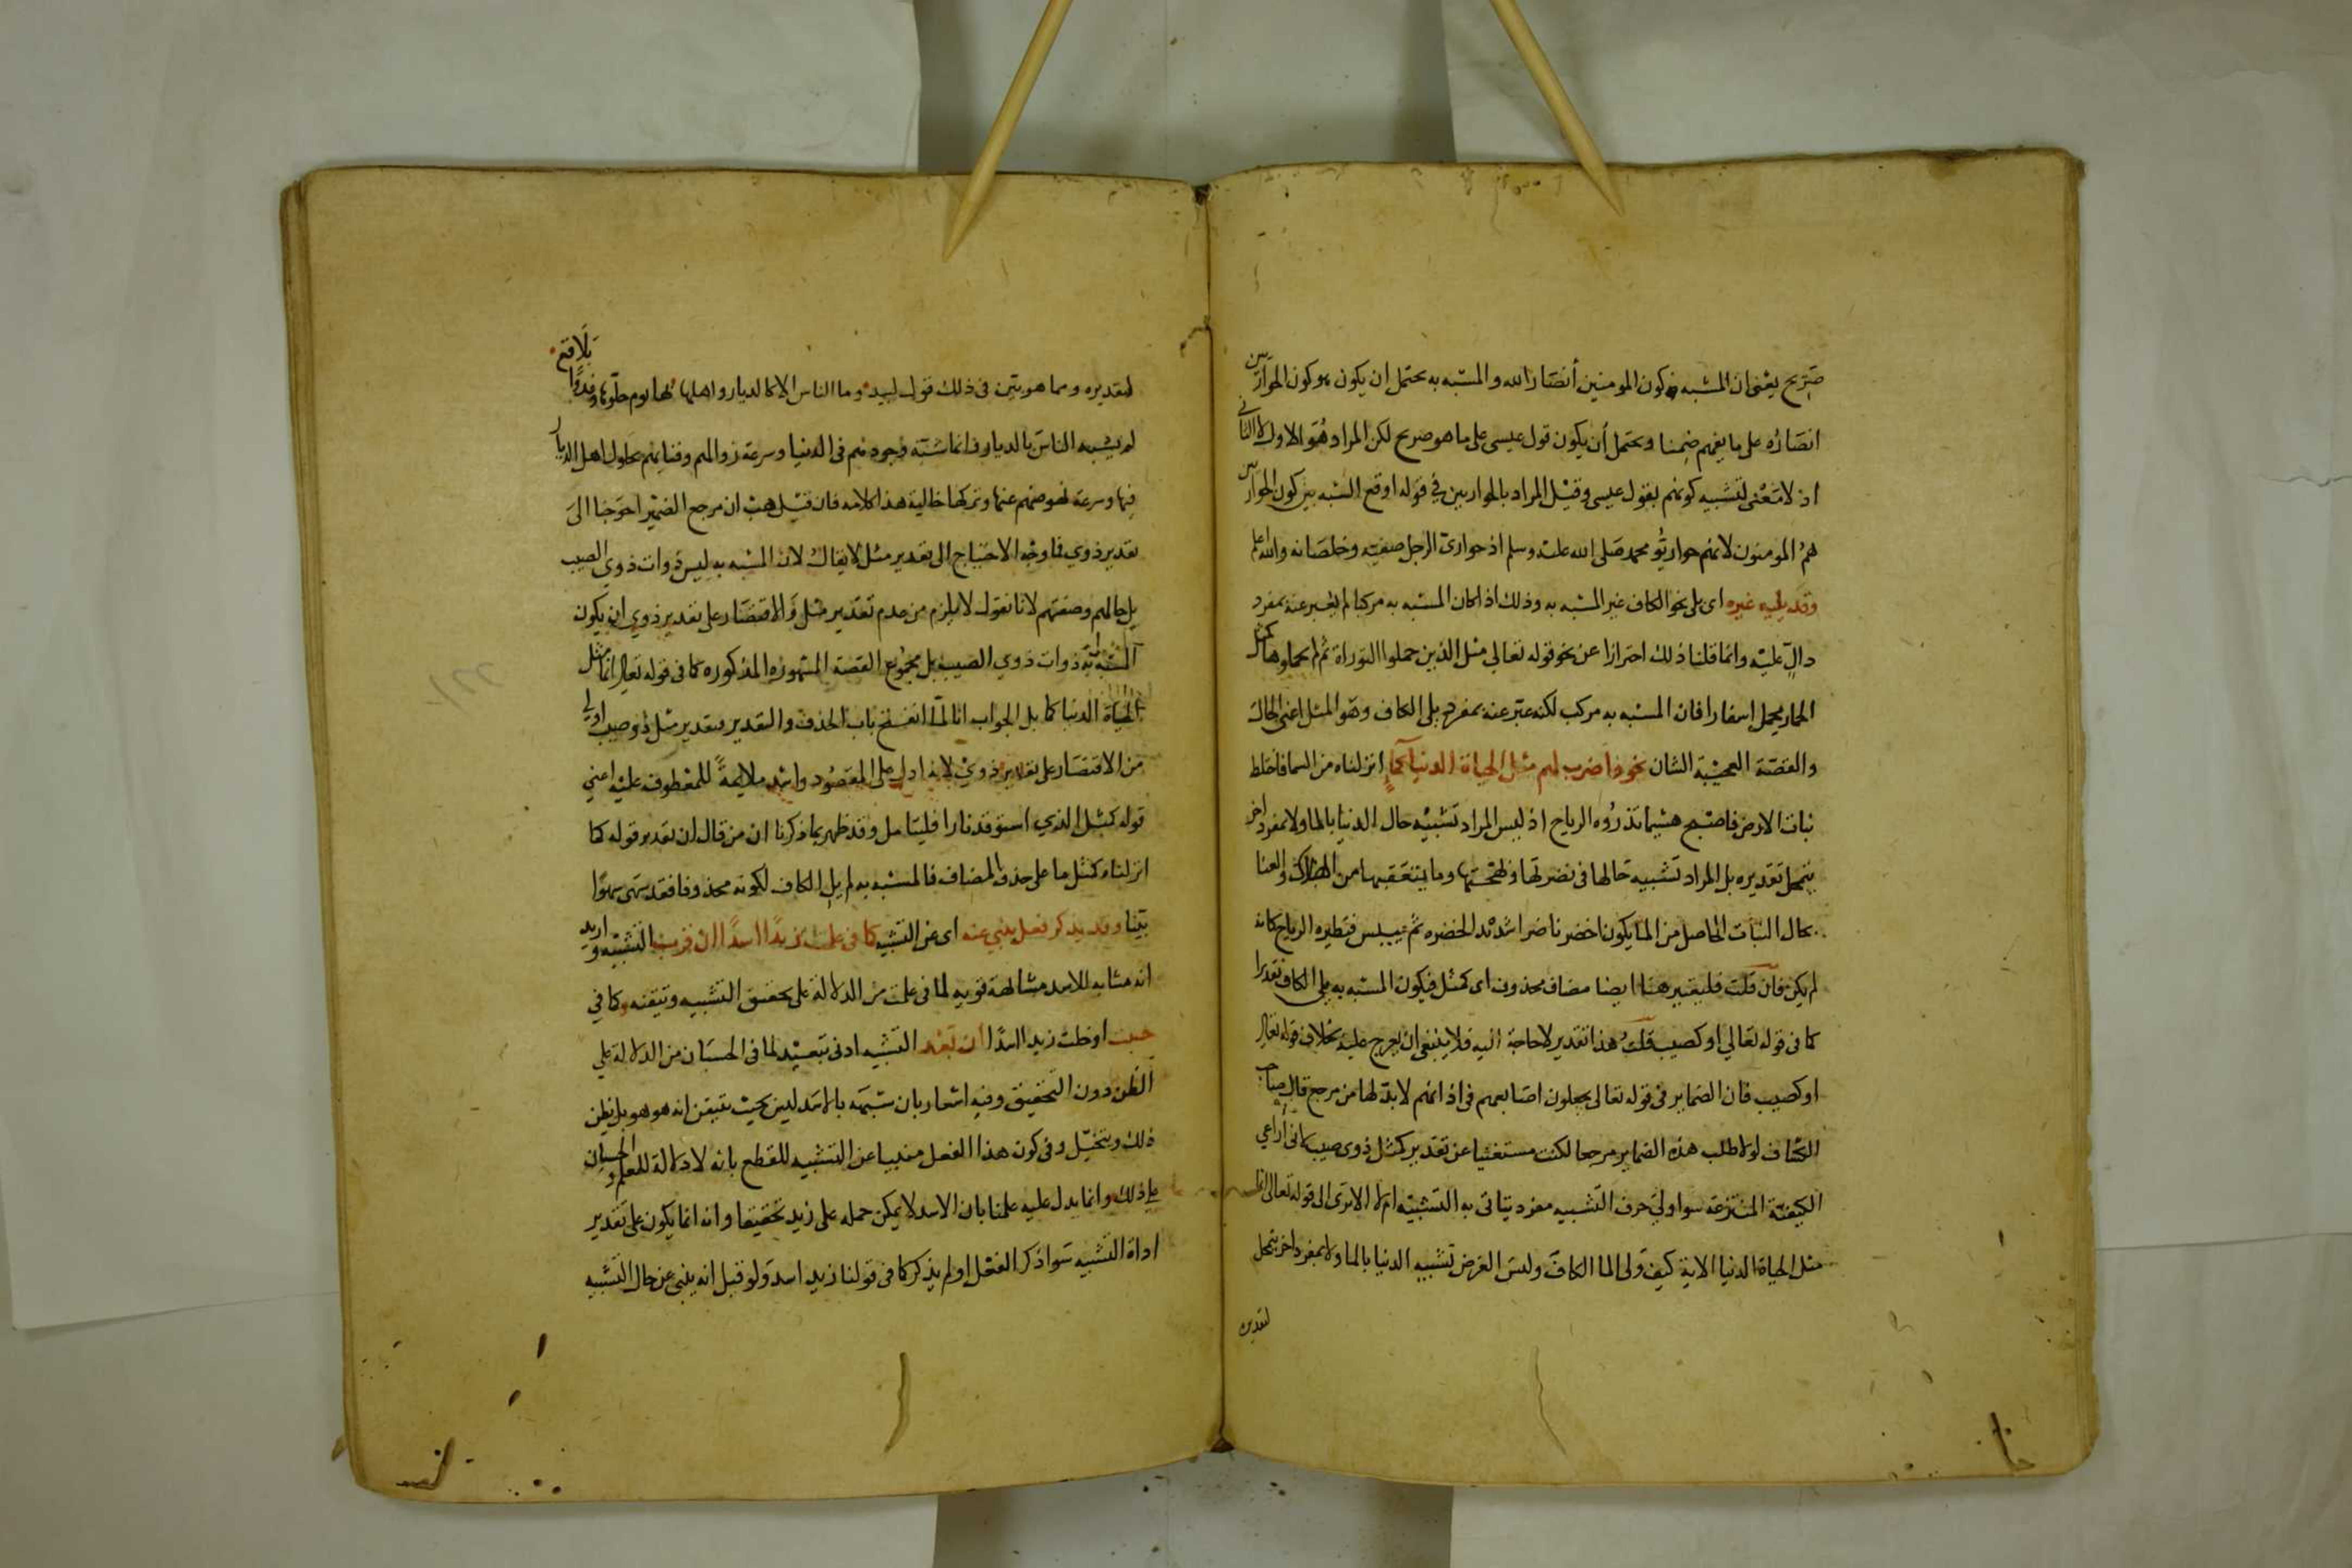 صريح يعنى ان المشبه كون المومنين أنصار الله والمشبه به يحتمل ان يكون هو كون الحواريين
انصاره على ما يفهم ضمنا ويحتمل أن يكون قول عيسى على ما هو صريح لكن المراد هو الاول لا الثانى
اذ لا معنى لتشبيه كونهم بقول عيسى وقيل المراد بالحواريين في قوله اوقع الشبه بين كون الحواريين
هم المومنون لانهم حواريو محمد صلى الله عليه وسلم اذ حوارى الرجل صفيه وخلصانه والله اعلم
وقد يليه غيره اى يلى نحو الكاف غير المشبه به وذلك اذا كان المشبه به مركبا لم يعبر عنه بمفرد
دال عليه وانما قلنا ذلك احترازا عن نحو قوله تعالى مثل الذين حملوا التوراة ثم لم يحملوها كمثل
الحمار يحمل اسفارا فان المشبه به مركب لكنه عبر عنه بمفرد يلى الكاف وهو المثل اعنى الحال
والقصة العجيبة الشان نحو واضرب لهم مثل الحياة الدنيا كماء انزلناه من السما فاختلط
نبات الارض فاصبح هشيما تذروه الرياح اذ ليس المراد تشبيه حال الدنيا بالما ولا بمفرد اخر
يتمحل تقديره بل المراد تشبيه حالها فى نضرتها وبهجتها وما يتعقبها من الهلاك والفنا
بحال النبات الحاصل من الما يكون اخضر ناضرا شديد الخضره ثم ييبس فتطيره الرياح كان
لم يكن فان قلت فليعتبر هنا ايضا مضاف محذوف اى كمثل فيكون المشبه به يلى الكاف تقديرا
كما فى قوله تعالي او كصيب قلت هذا تقدير لا حاجة اليه فلا ينبغى ان يعرج عليه بخلاف قوله تعالى
او كصيب فان الضماير فى قوله تعالى يجعلون اصابعهم فى اذانهم لا بد لها من مرجع قال صاحب
الكشاف لولا طلب هذه الضماير مرجعا لكنت مستغنيا عن تقدير كمثل ذوى صيب لانى أراعي
الكيفية المنتزعة سوا ولي حرف التشبيه مفرد يتاتى به التشبيه ام لا الا ترى الى قوله تعالى انما
مثل الحياة الدنيا الاية كيف ولى الما الكاف وليس الغرض تشبيه الدنيا بالما ولا بمفرد اخر يتمحل
لتقديره
لتقديره ومما هو بين فى ذلك قول لبيد وما الناس الا كالديار واهلها بها يوم حلوها وغدوا بلاقع
لم يشبه الناس بالديار وانما شبه وجودهم فى الدنيا وسرعة زوالهم وفنايهم بحلول اهل الديار
فيها وسرعة نهوضهم عنها وتركها خالية هذا كلامه فان قيل هب ان مرجع الضمير احوجنا الى
تقدير ذوي فما وجه الاحتياج الى تقدير مثل لا يقال لان المشبه به ليس ذوات ذوي الصيب
بل حالهم وصفتهم لانا نقول لا يلزم من عدم تقدير مثل والاقتصار على تقدير ذوي ان يكون
المشبه به ذوات ذوي الصيب بل مجموع القصة المذكوره كما فى قوله تعالى انما مثل
الحياة الدنيا كما بل الجواب انا لما انفتح باب الحذف والتقدير فتقدير مثل ذوي صيب اولى
من الاقتصار على تقدير ذوي لانه ادل على المقصود واشد ملايمة للمعطوف عليه اعني
قوله كمثل الذي استوقد نارا فليتامل وقد ظهر بما ذكرنا ان من قال ان تقدير قوله كما
انزلناه كمثل ما على حذف المضاف فالمشبه به لم يل الكاف لكونه محذوفا فقد سهى سهوا
بينا وقد يذكر فعل ينبي عنه اى عن التشبيه كما فى علمت زيدا اسدا ان قرب التشبيه واريد
انه مشابه للاسد مشابهة قويه لما فى علمت من الدلالة على تحقيق التشبيه وتيقنه وكما في
حسبت او خلت زيدا اسدا ان بعد التشبيه ادنى تبعيد لما فى الحسبان من الدلالة علي
الظن دون التحقيق وفيه اشعار بان شبهه بالاسد ليس بحيث يتيقن انه هو هو بل يظن
ذلك ويتخيل وفى كون هذا الفعل منبيا عن التشبيه للقطع بانه لا دلالة للعلم والحسبان
على ذلك وانما يدل عليه علمنا بان الاسد لا يمكن حمله على زيد تحقيقا وانه انما يكون على تقدير
اداة التشبيه سوا ذكر الفعل او لم يذكر كما فى قولنا زيد اسد ولو قيل انه ينبى عن حال التشبيه